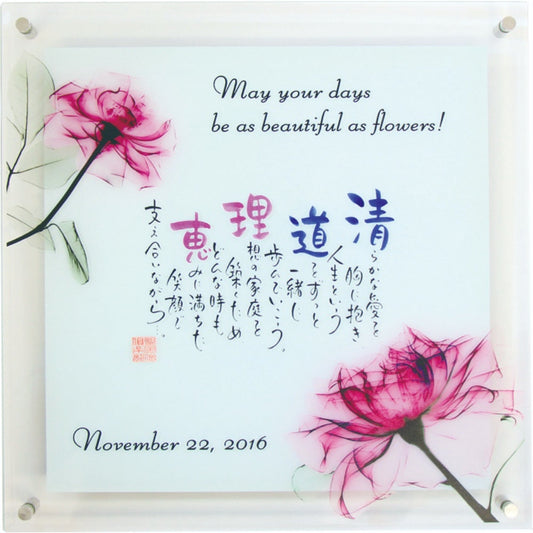 May your days
be as beautiful as flowers!
清らかな愛を
胸に抱き
道
人生という
をずっと
一緒に
歩んでいこう。
理想の家庭を
築くため
どんな時も
恵みに満ちた
笑顔で
支え合いながら…。
November 22, 2016